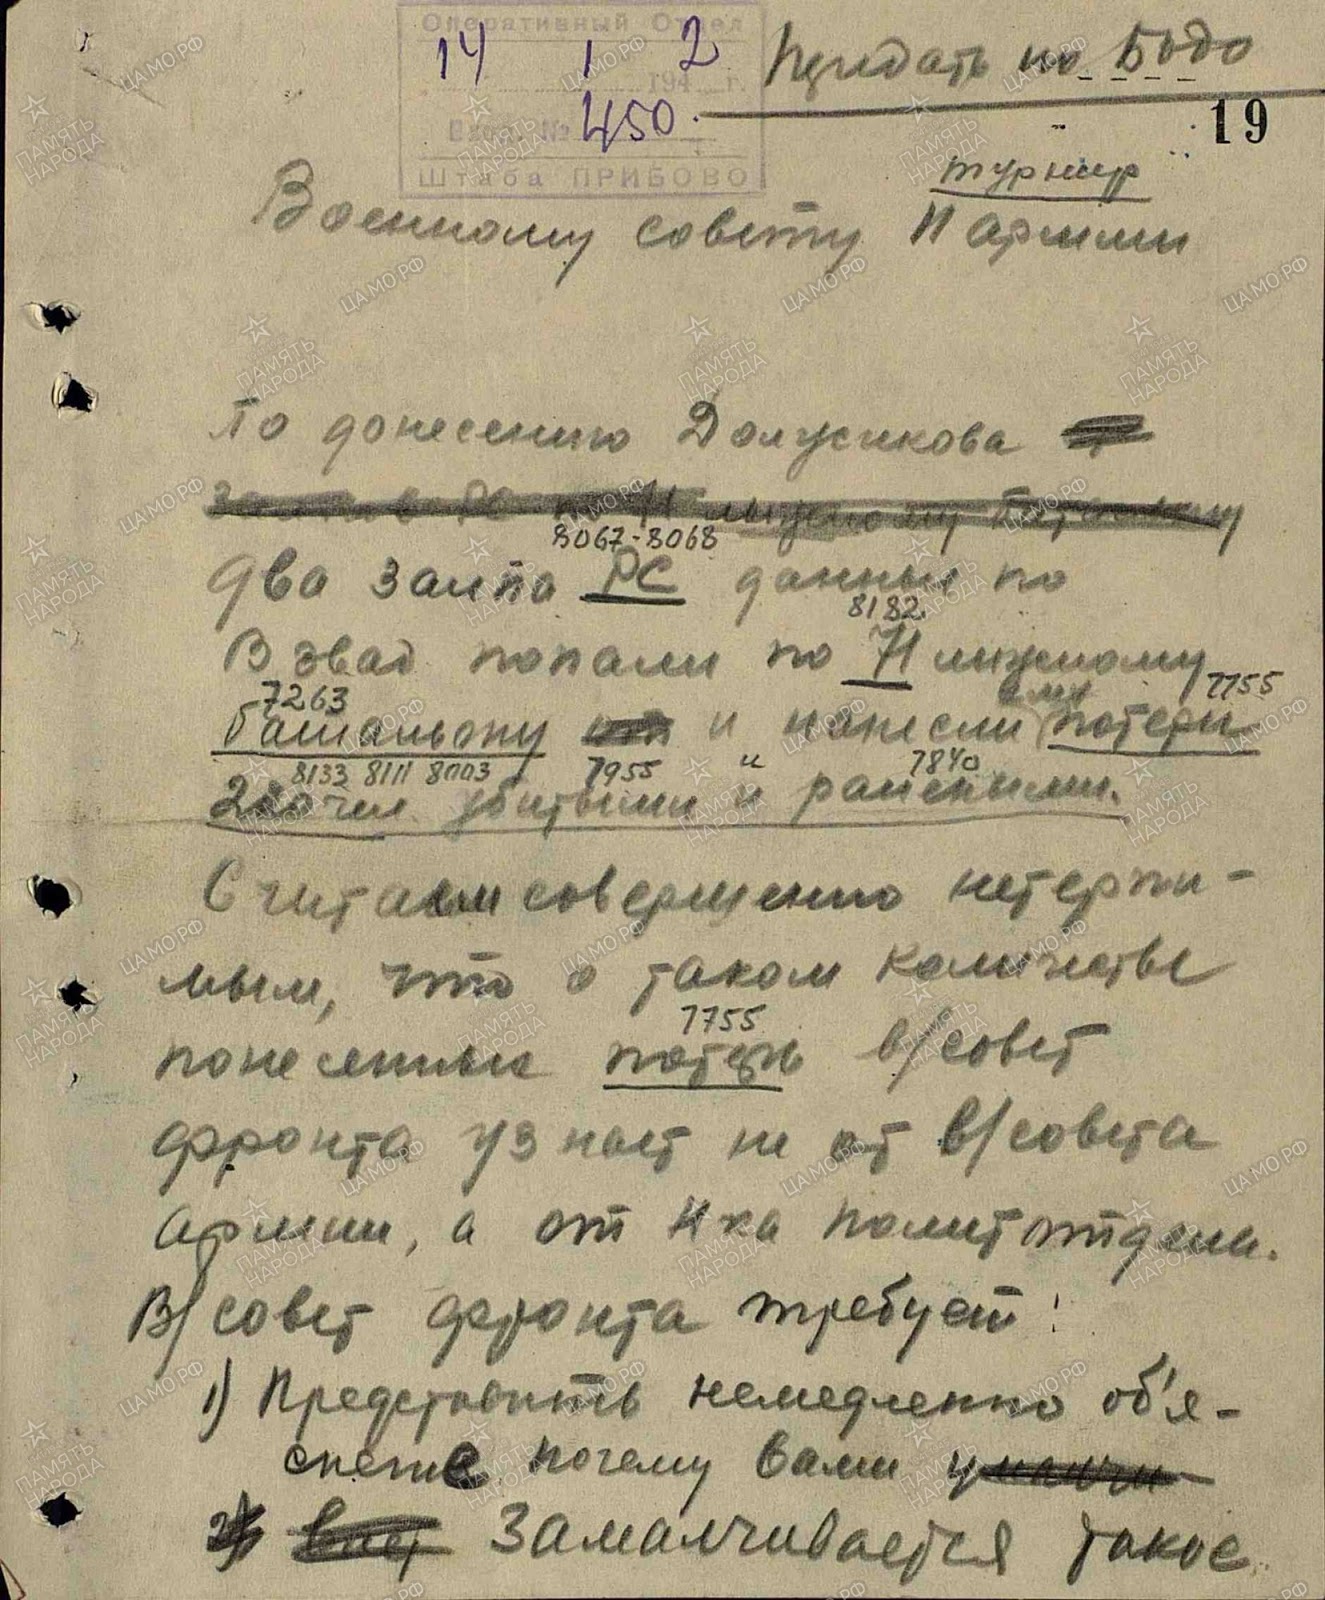 Оперативный Отдел
14 1 1942 г.
Входящ. № 450.
Штаба ПРИБОВО
Передать по Бодо
19
турнир
Военному совету 11 армии
По донесению
8067-8068
два залпа РС данные по
8182
Взвад попали по 71 лыжному
7263 ами 7755
батальону и нанесли потери
8133 8111 8003 7955 7840
200 чел убитыми и ранеными.
Считаем совершенно нетерпи-
мым, что о таком количестве
7755
понесенных потерь в/совет
фронта узнает не от в/совета
армии, а от Н-ка политотдела.
В/совет фронта требует:
1) Представить немедленно об'я-
снение почему вами
замалчивается такое